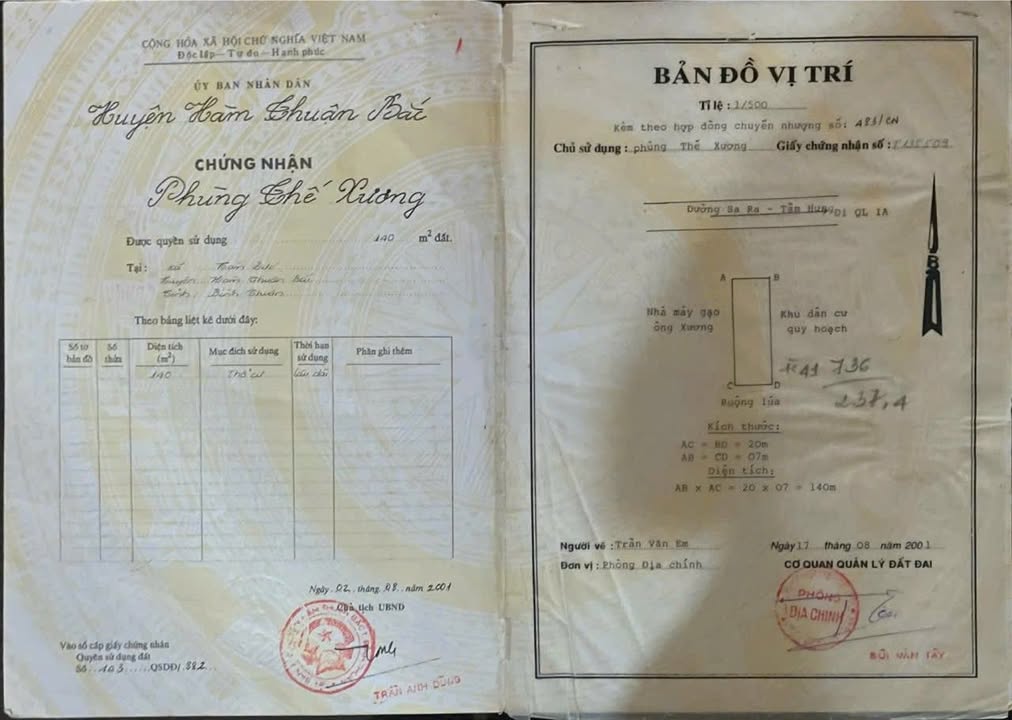 CỘNG HÒA XÃ HỘI CHỦ NGHĨA VIỆT NAM
Độc lập — Tự do — Hạnh phúc
1
ỦY BAN NHÂN DÂN
Huyện Hàm Thuận Bắc
CHỨNG NHẬN
Phùng Thế Xương
Được quyền sử dụng 140 m² đất.
Tại: xã Hàm Đức
Huyện Hàm Thuận Bắc
Tỉnh Bình Thuận
Theo bảng liệt kê dưới đây:
Số tờ bản đồ Số thửa Diện tích (m²) Mục đích sử dụng Thời hạn sử dụng Phần ghi thêm
140 Thổ cư lâu dài
Ngày 02 tháng 08 năm 2001
Chủ tịch UBND
Vào sổ cấp giấy chứng nhận
Quyền sử dụng đất
Số 103 QSDĐ/ 882
TRẦN ANH DŨNG
BẢN ĐỒ VỊ TRÍ
Tỉ lệ: 1/500
Kèm theo hợp đồng chuyển nhượng số: A83/CN
Chủ sử dụng: phùng Thế Xương Giấy chứng nhận số:
Đường Sa Ra - Tầm Hưng Đi QL 1A
B
A B
Nhà máy gạo
ông Xương
Khu dân cư
quy hoạch
C D
736
237,4
Ruộng lúa
Kích thước:
AC = BD = 20m
AB = CD = 07m
Diện tích:
AB x AC = 20 x 07 = 140m
Người vẽ: Trần Văn Em
Đơn vị: Phòng Địa chính
Ngày 17 tháng 08 năm 2001
CƠ QUAN QUẢN LÝ ĐẤT ĐAI
PHÒNG
ĐỊA CHÍNH
BÙI VĂN TÂY